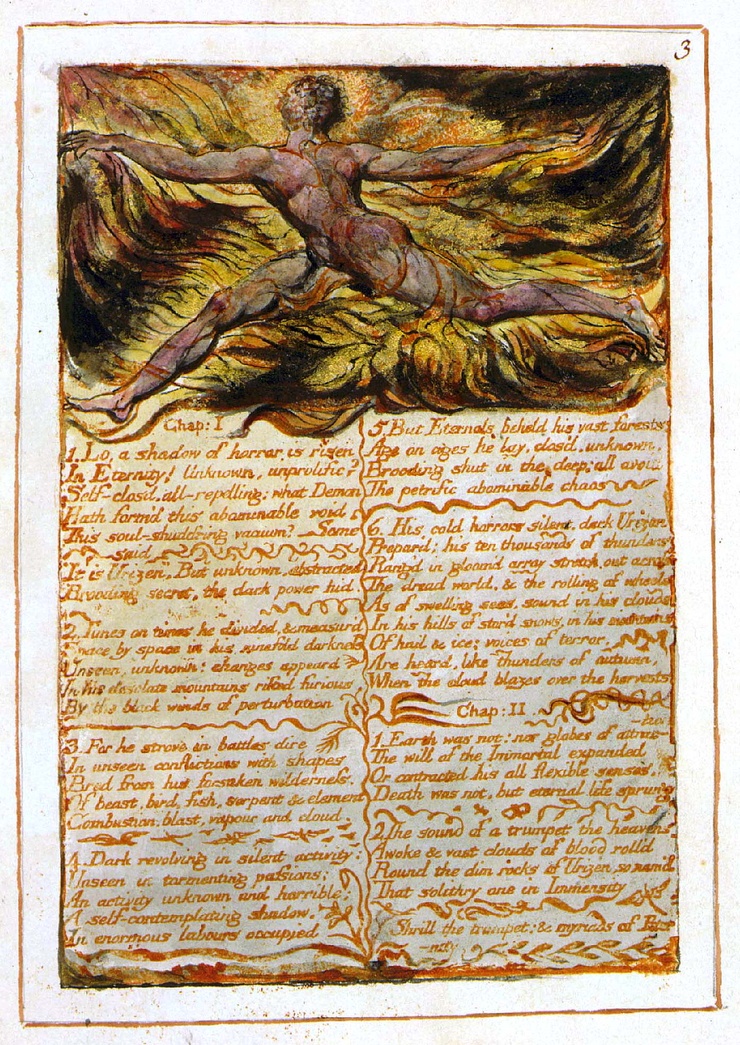 3
Chap: I
1. Lo, a shadow of horror is risen
In Eternity! Unknown, unprolific?
Self-closd, all-repelling: what Demon
Hath form'd this abominable void
This soul-shudd'ring vacuum? — Some
said
It is Urizen, But unknown, abstracted
Brooding secret, the dark power hid.
2. Times on times he divided, & measur'd
Space by space in his ninefold darkness
Unseen, unknown: changes appeard
In his desolate mountains rifted furious
By the black winds of perturbation
3. For he strove in battles dire
In unseen conflictions with shapes
Bred from his forsaken wilderness,
Of beast, bird, fish, serpent & element
Combustion, blast, vapour and cloud.
4. Dark revolving in silent activity:
Unseen in tormenting passions;
An activity unknown and horrible;
A self-contemplating shadow,
In enormous labours occupied
5. But Eternals beheld his vast forests
Age on ages he lay, clos'd, unknown,
Brooding shut in the deep; all avoid
The petrific abominable chaos
6. His cold horrors silent, dark Urizen
Prepar'd: his ten thousands of thunders
Rang'd in gloom'd array stretch out across
The dread world, & the rolling of wheels
As of swelling seas, sound in his clouds
In his hills of stor'd snows, in his mountains
Of hail & ice; voices of terror,
Are heard, like thunders of autumn,
When the cloud blazes over the harvests
Chap: II
1. Earth was not: nor globes of attrac-
-tion
The will of the Immortal expanded
Or contracted his all flexible senses.
Death was not, but eternal life sprung
2. The sound of a trumpet the heavens
Awoke & vast clouds of blood roll'd
Round the dim rocks of Urizen, so nam'd
That solitary one in Immensity
Shrill the trumpet: & myriads of Eter-
-nity